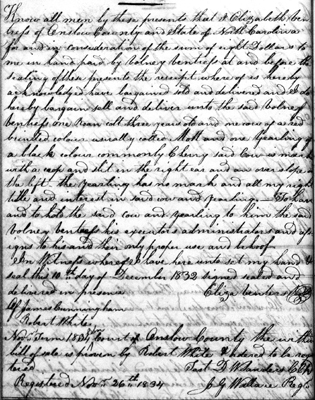 Know all men by these presents that I Elizabeth Ven
tress of Onslow County and State of North Carolina
for and in consideration of the sum of eight Dollars to
me in hand paid by Volney Ventress at and before the
sealing of these presents the receipt where of is hereby
acknowledged have bargained sold and delivered and I do
hereby bargain sell and deliver unto the said Volney
Ventress one cow calf three years old and now up a red
colour usually called Moll and one Yearling of
a black colour commonly Cherry said Cow is mark
with a crop and slit in the right ear and over slope in
the left the yearling has no mark and all my right
title and interest in said cow and yearling To have
and to hold the said cow and yearling to him the said
Volney Ventress his executors administrators and ass
igns to his and their only proper use and behoof
In Witness where of I have here unto set my hand &
seal this 10th day of December 1832 signed sealed and
delivered in presence Eliza Venters
Of James Cunningham
Robert White
Nov. Term 1834 Court of Onslow County the within
bill of sale is proven by Robert White & ordered to be regis
tered Test D W Sanders Clk
Registered Nov. 26th 1834 J G Wallace Regr.